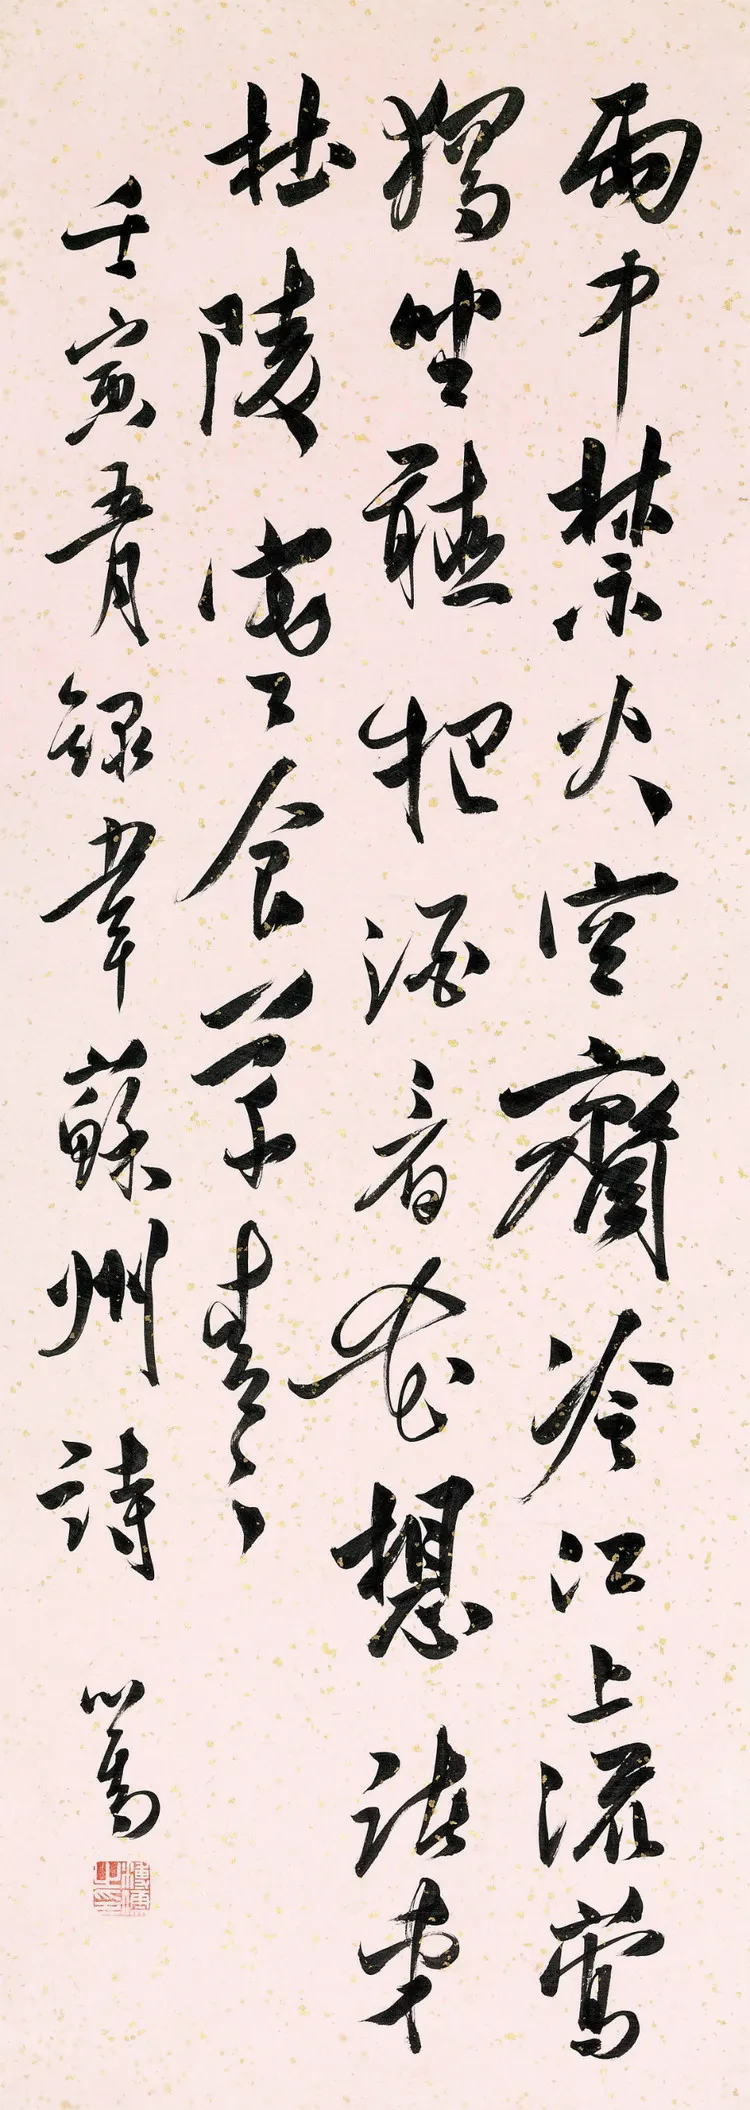 雨中禁火空齋冷江上流鶯
獨坐聽把酒看花想諸弟
杜陵寒食草青〻
壬寅五月錄韋蘇州詩 心畬
溥儒之印